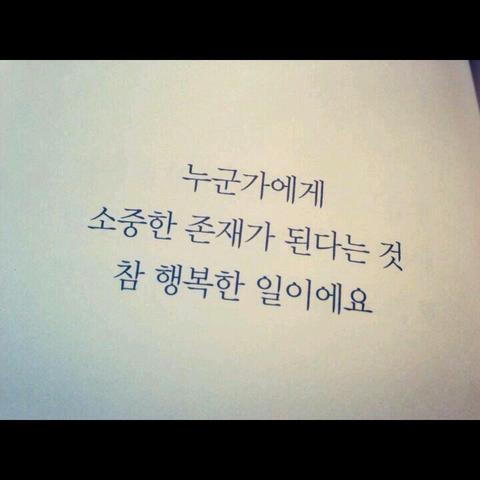 누군가에게
소중한 존재가 된다는 것
참 행복한 일이에요